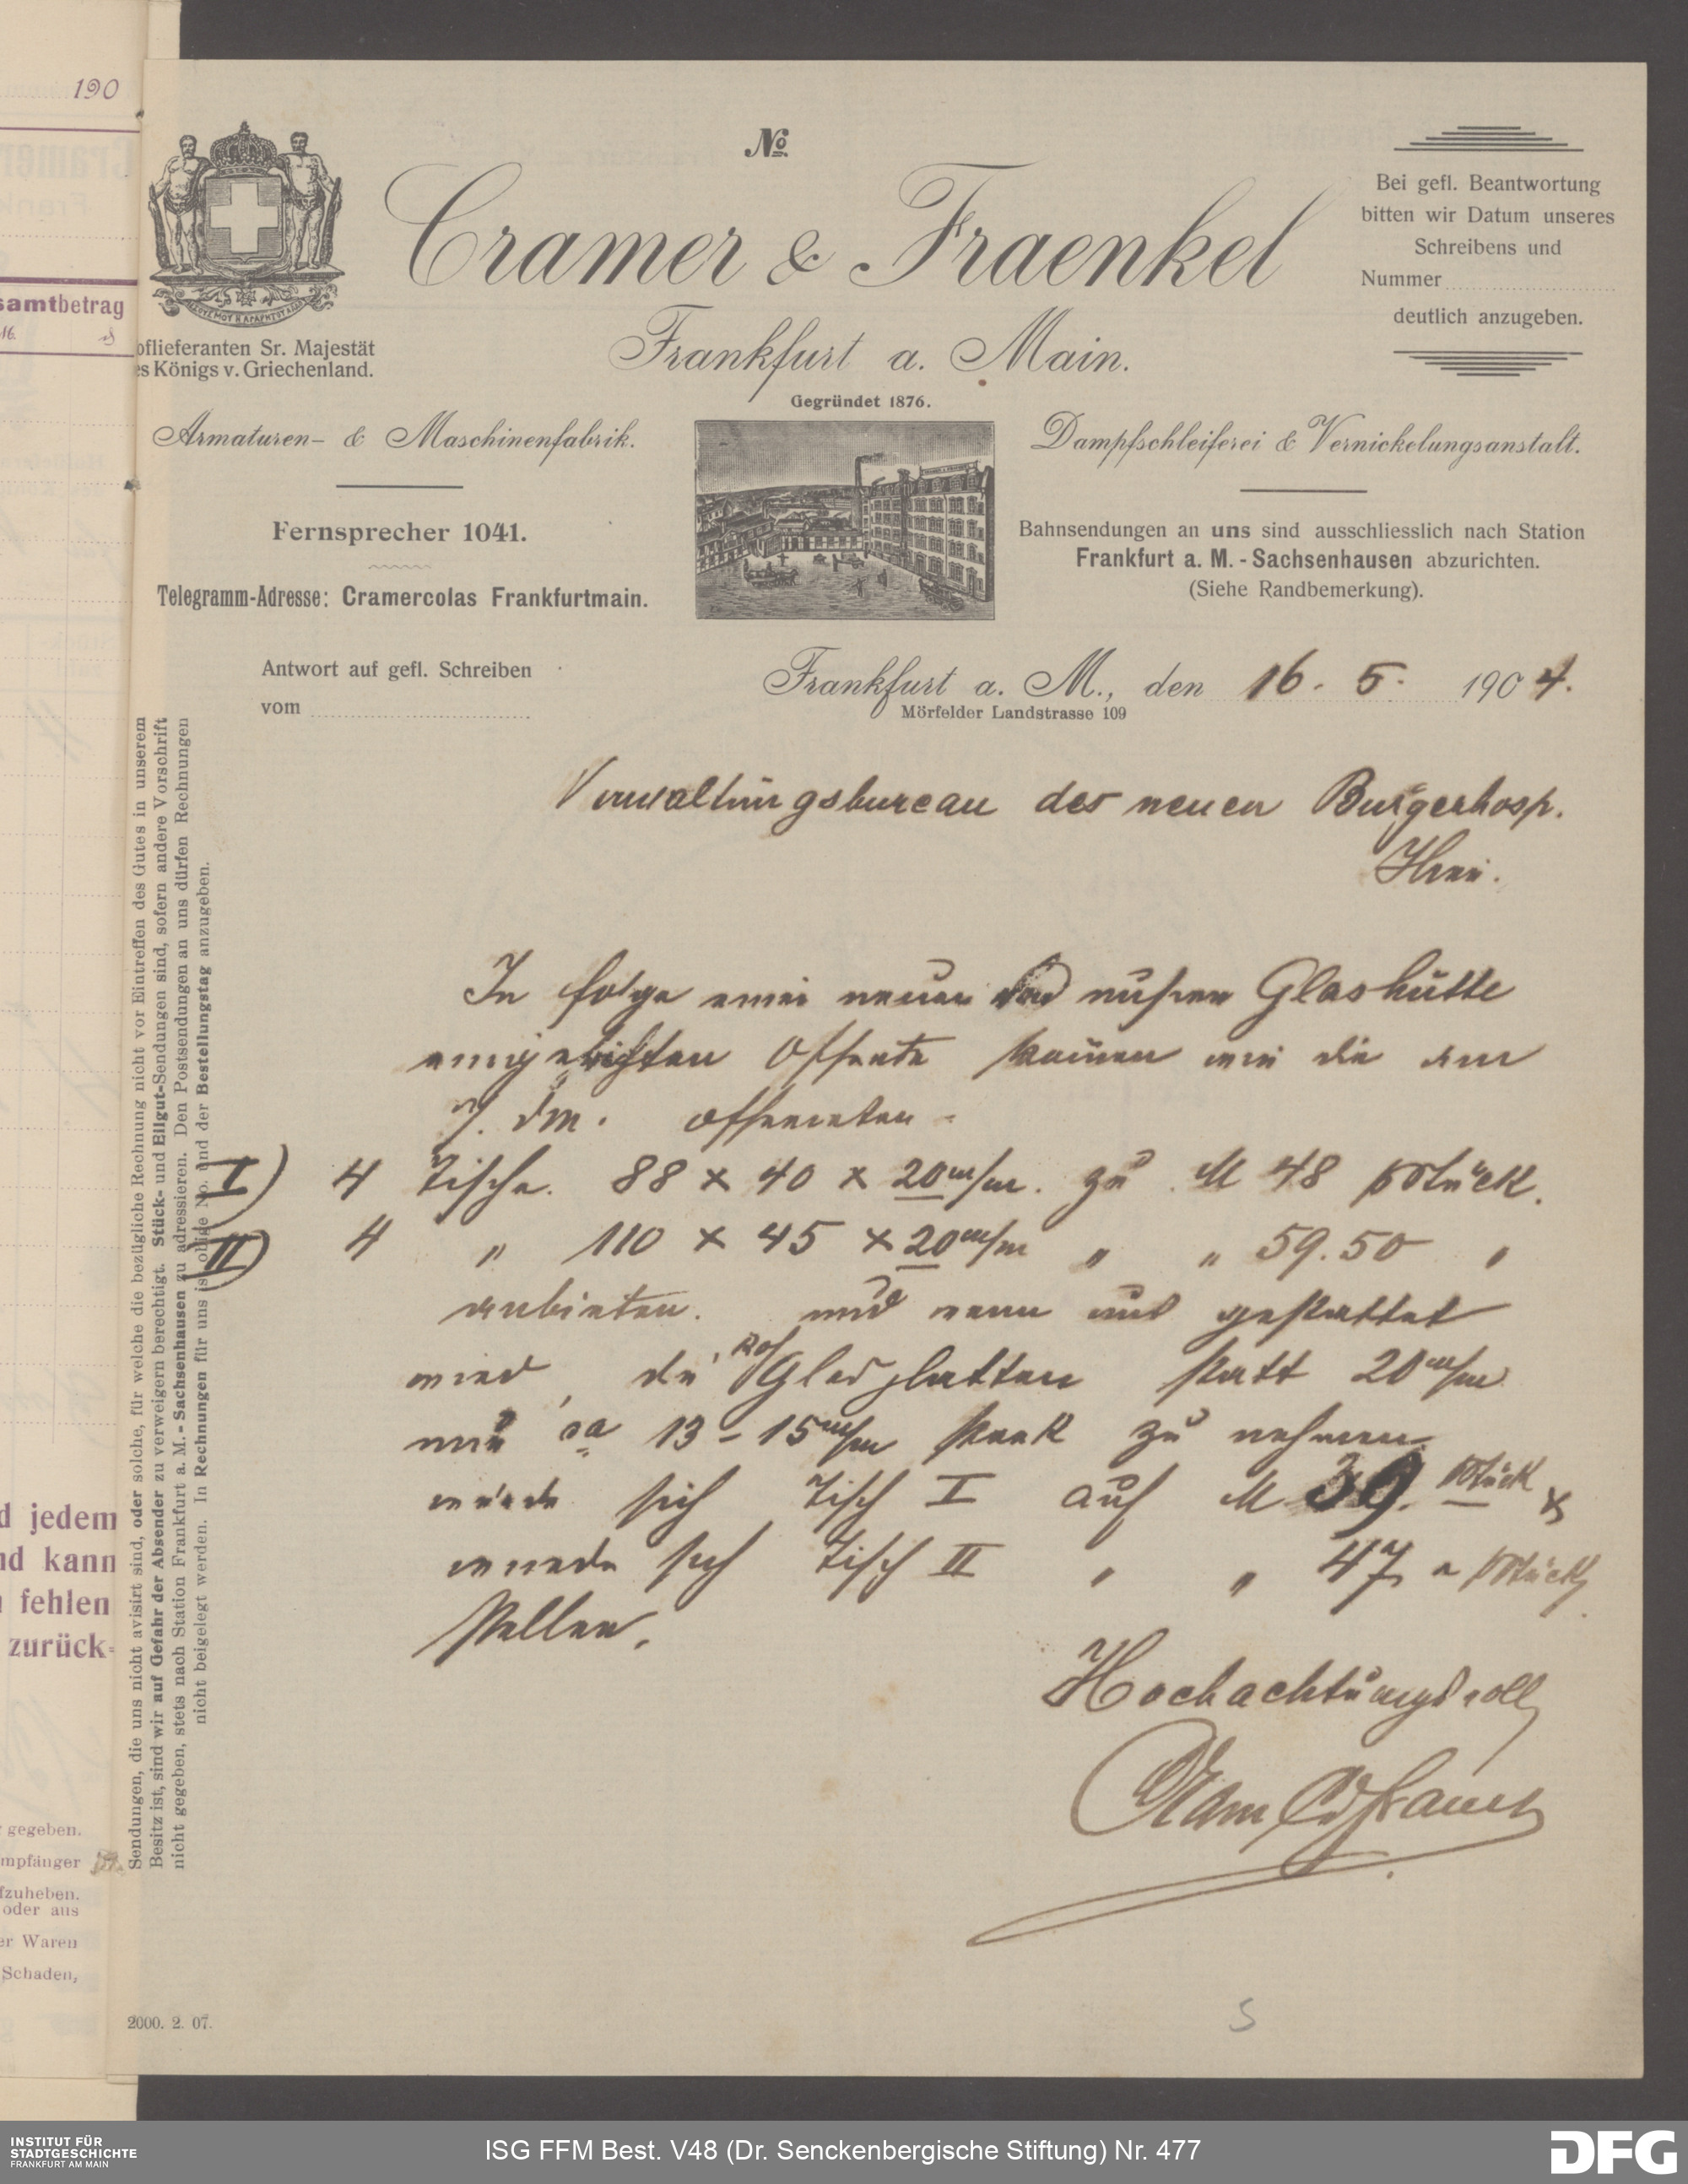 190
samtbetrag
M.
№
Cramer & Fraenkel
Frankfurt a. Main.
Gegründet 1876.
Bei gefl. Beantwortung
bitten wir Datum unseres
Schreibens und
Nummer
deutlich anzugeben.
oflieferanten Sr. Majestät
es Königs v. Griechenland.
Armaturen- & Maschinenfabrik.
Dampfschleiferei & Vernickelungsanstalt.
Fernsprecher 1041.
Telegramm-Adresse: Cramercolas Frankfurtmain.
Bahnsendungen an uns sind ausschliesslich nach Station
Frankfurt a. M. - Sachsenhausen abzurichten.
(Siehe Randbemerkung).
Antwort auf gefl. Schreiben
vom
Frankfurt a. M., den 16. 5. 1904.
Mörfelder Landstrasse 109
Verwaltungsbureau des neuen Burgerhosp.
Hier.
In folge einer neuen von Glashütte
Offerte können wir die am
7. dM. offerirten
I) 4 Tische. 88 x 40 x 20 m/m. zu M 48 p Stück.
II) 4 " 110 x 45 x 20 m/m " " 59.50 "
anbieten. und wenn uns gestattet
wird, die Roh Glasplatten statt 20 m/m
nur ca 13-15 m/m stark zu nehmen
würde sich Tisch I auf M 39. p Stück &
wuerde sich Tisch II " " 47 " p Stück
stellen.
Hochachtungsvoll
Sendungen, die uns nicht avisirt sind, oder solche, für welche die bezügliche Rechnung nicht vor Eintreffen des Gutes in unserem
Besitz ist, sind wir auf Gefahr der Absender zu verweigern berechtigt. Stück- und Eilgut-Sendungen sind, sofern andere Vorschrift
nicht gegeben, stets nach Station Frankfurt a. M. - Sachsenhausen zu adressieren. Den Postsendungen an uns dürfen Rechnungen
nicht beigelegt werden. In Rechnungen für uns ist obige No. und der Bestellungstag anzugeben.
d jedem
nd kann
fehlen
zurück-
gegeben.
mpfänger
fzuheben.
oder aus
er Waren
Schaden,
2000. 2. 07.
5
INSTITUT FÜR
STADTGESCHICHTE
FRANKFURT AM MAIN
ISG FFM Best. V48 (Dr. Senckenbergische Stiftung) Nr. 477
DFG